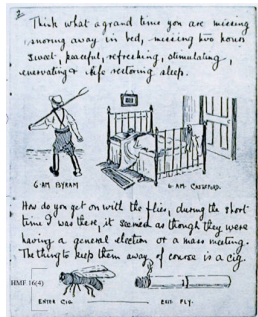 2
Think what a grand time you are missing
snoring away in bed, missing two hours
sweet, peaceful, refreshing, stimulating,
enervating & life restoring sleep.
6·AM BYRAM
6·AM CASTLEFORD.
How do you get on with the flies, during the short
time I was there, it seemed as though they were
having a general election or a mass meeting.
The thing to keep them away of course is a cig.
HMF 16(4)
ENTER CIG
EXIT FLY.